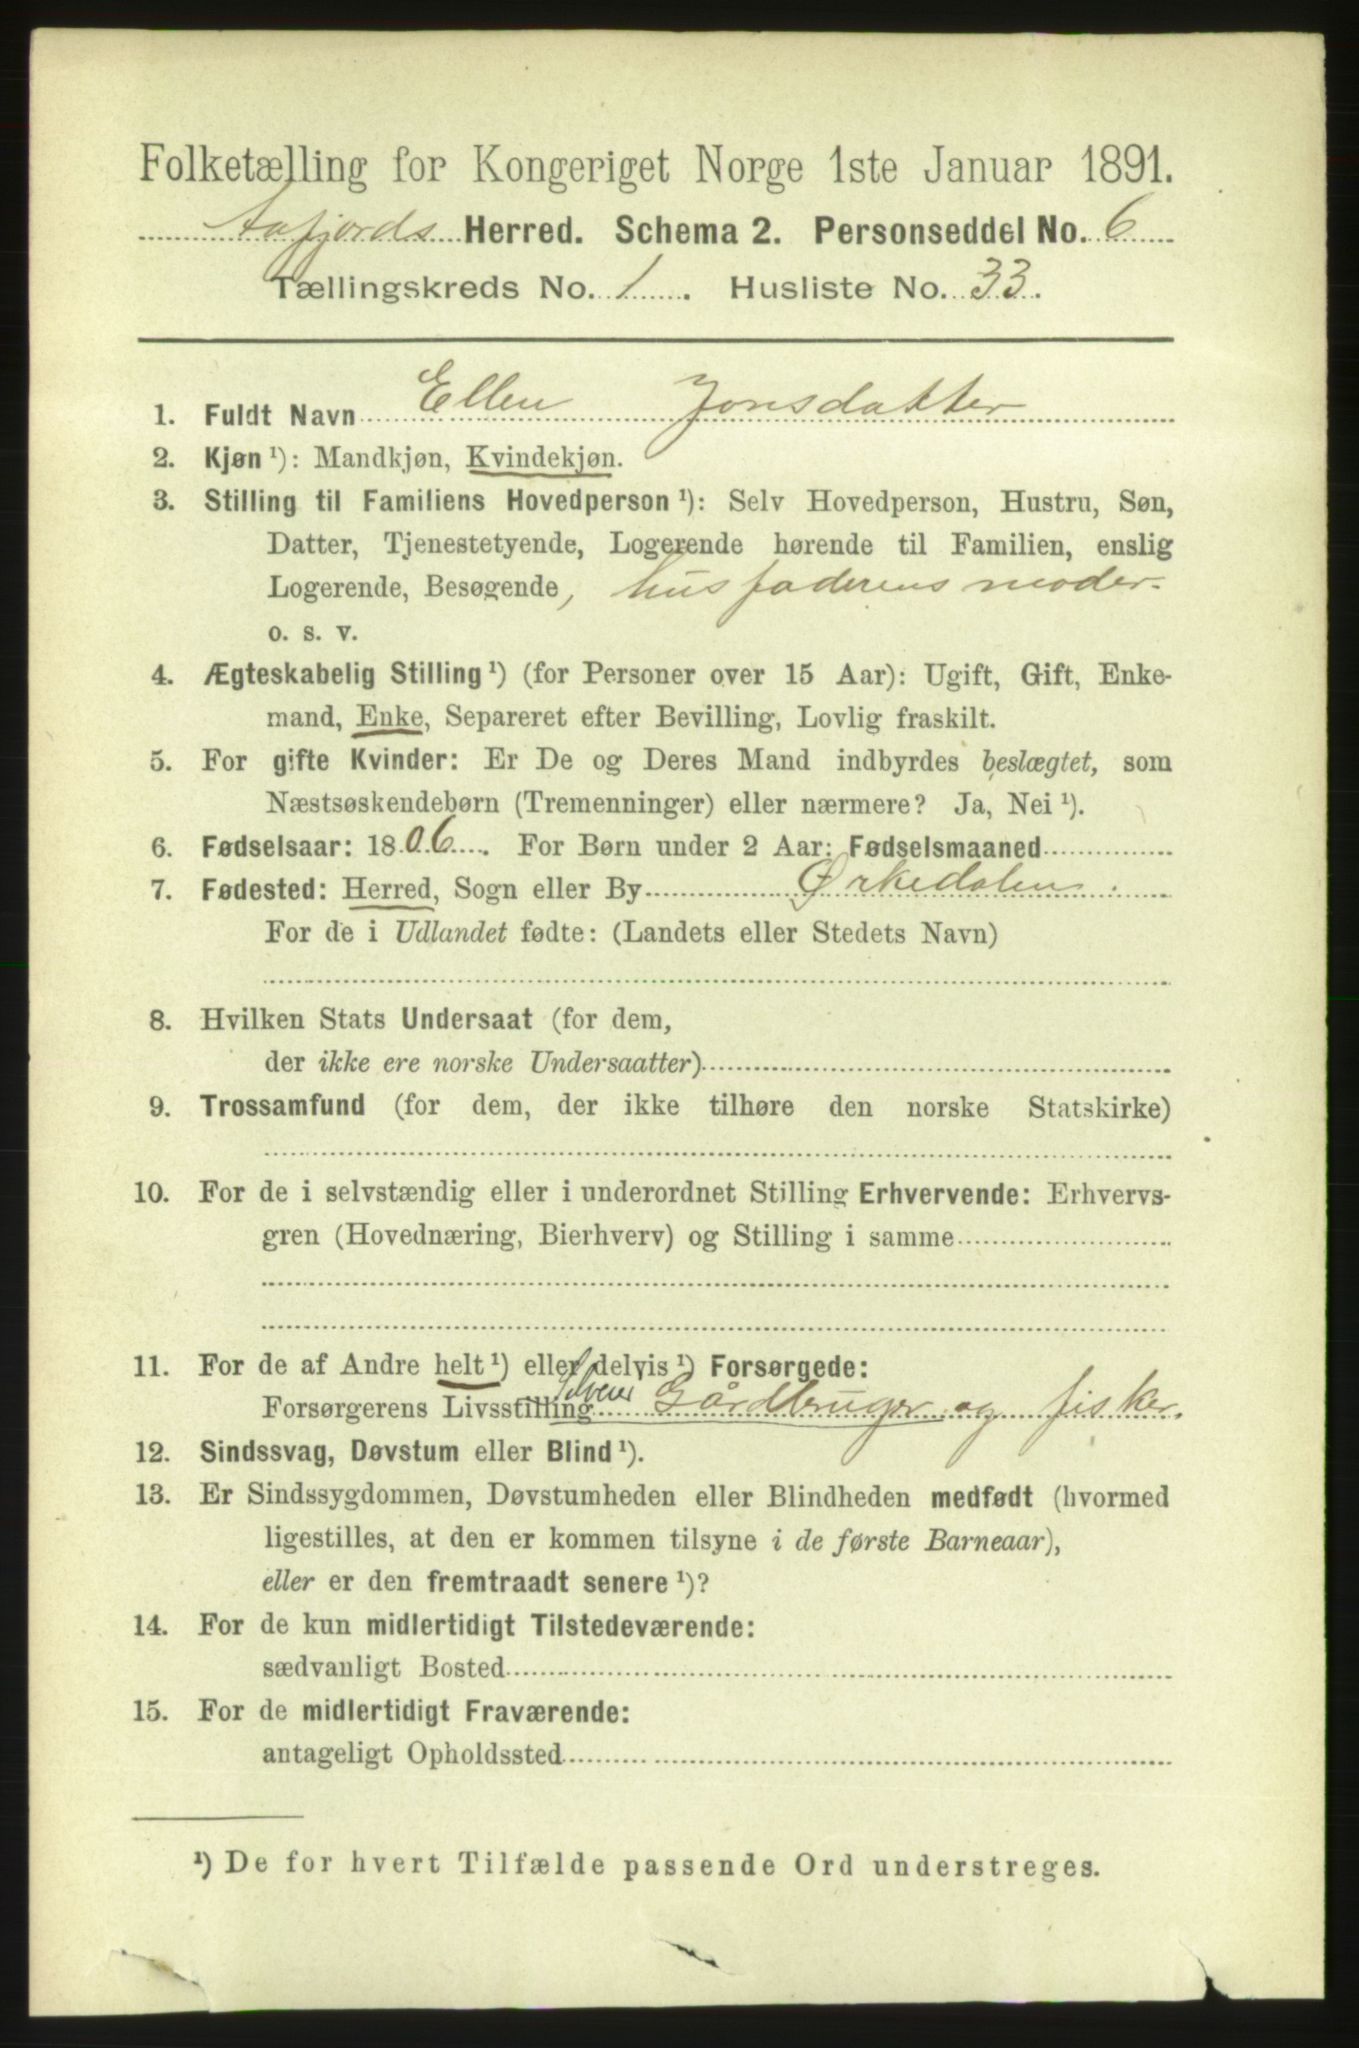 Folketælling for Kongeriget Norge 1ste Januar 1891.
Aafjords Herred. Schema 2. Personseddel No. 6
Tællingskreds No. 1. Husliste No. 33.
1. Fuldt Navn Ellen Jonsdatter
2. Kjøn ¹): Mandkjøn, Kvindekjøn.
3. Stilling til Familiens Hovedperson ¹): Selv Hovedperson, Hustru, Søn,
Datter, Tjenestetyende, Logerende hørende til Familien, enslig
Logerende, Besøgende, husfaderens moder.
o. s. v.
4. Ægteskabelig Stilling ¹) (for Personer over 15 Aar): Ugift, Gift, Enke-
mand, Enke, Separeret efter Bevilling, Lovlig fraskilt.
5. For gifte Kvinder: Er De og Deres Mand indbyrdes beslægtet, som
Næstsøskendebørn (Tremenninger) eller nærmere? Ja, Nei ¹).
6. Fødselsaar: 1806. For Børn under 2 Aar: Fødselsmaaned
7. Fødested: Herred, Sogn eller By Ørkedalen.
For de i Udlandet fødte: (Landets eller Stedets Navn)
8. Hvilken Stats Undersaat (for dem,
der ikke ere norske Undersaatter)
9. Trossamfund (for dem, der ikke tilhøre den norske Statskirke)
10. For de i selvstændig eller i underordnet Stilling Erhvervende: Erhvervs-
gren (Hovednæring, Bierhverv) og Stilling i samme
11. For de af Andre helt ¹) eller delvis ¹) Forsørgede:
Forsørgerens Livsstilling Selveier Gårdbruger og fisker.
12. Sindssvag, Døvstum eller Blind ¹).
13. Er Sindssygdommen, Døvstumheden eller Blindheden medfødt (hvormed
ligestilles, at den er kommen tilsyne i de første Barneaar),
eller er den fremtraadt senere ¹)?
14. For de kun midlertidigt Tilstedeværende:
sædvanligt Bosted
15. For de midlertidigt Fraværende:
antageligt Opholdssted
¹) De for hvert Tilfælde passende Ord understreges.